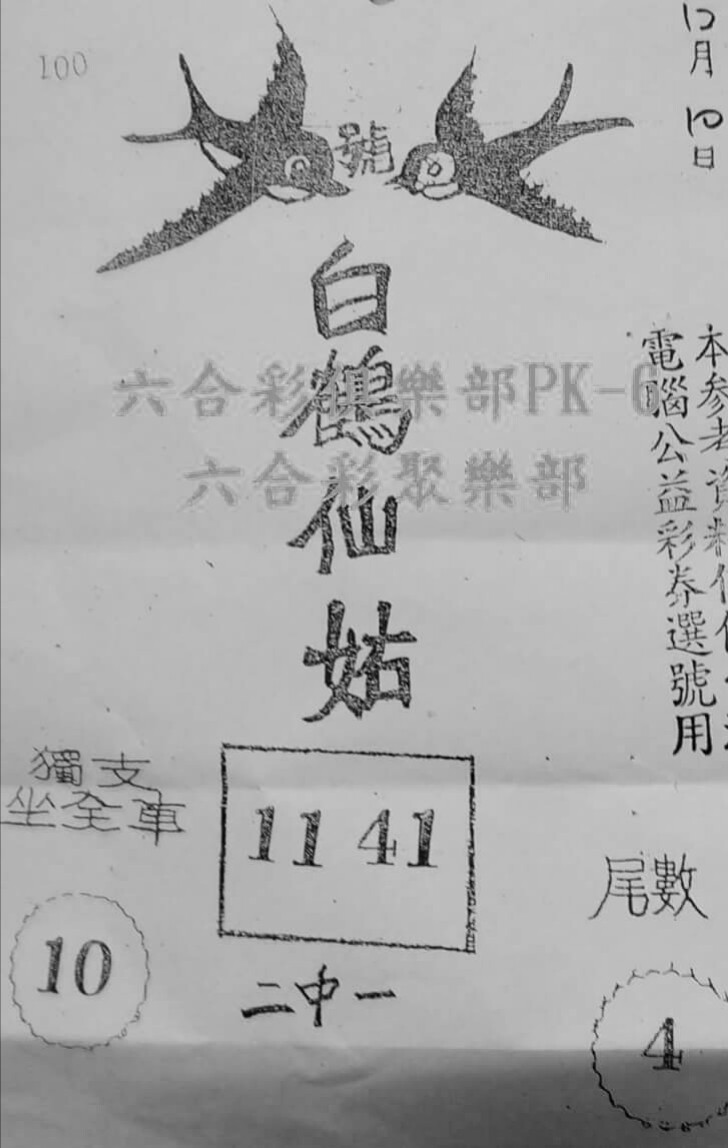 100
號
12月
10日
白鶴仙姑
六合彩 樂部PK-6
六合彩聚樂部
本參考資料
電腦公益彩券選號用
獨支
坐全車
10
11 41
二中一
尾數
4